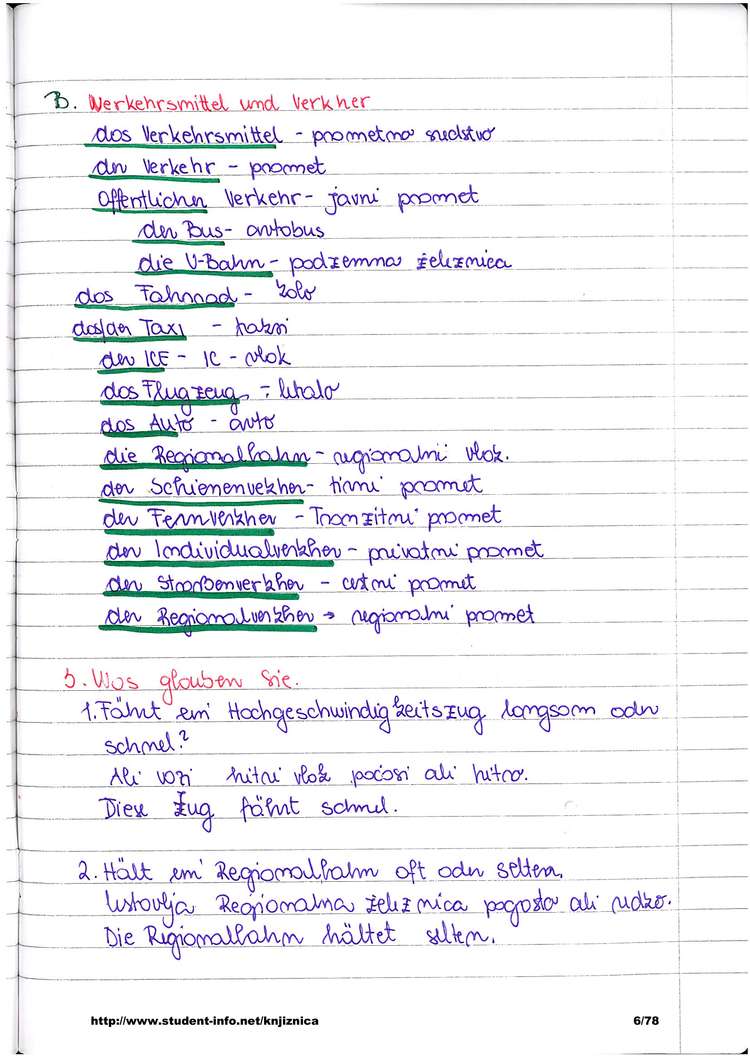 B. Verkehrsmittel und Verkher
das Verkehrsmittel - prometno sredstvo
der Verkehr - promet
Öffentlicher Verkehr - javni promet
der Bus - avtobus
die U-Bahn - podzemna železnica
das Fahrrad - kolo
das/der Taxi - taksi
der ICE - IC - vlak
das Flugzeug - letalo
das Auto - avto
die Regionalbahn - regionalni vlak.
der Schienenvekher - tirni promet
der Fernverkher - Tranzitni promet
der Individualverkher - privatni promet
der Straßenverkher - cestni promet
der Regionalverkher → regionalni promet
5. Was glauben Sie.
1. Fährt ein Hochgeschwindigkeitszug langsam oder
schnel?
Ali vozi hitri vlak počasi ali hitro.
Diese Zug fährt schnel.
2. Hält ein Regionalbahn oft oder selten.
Ustavlja Regionalna železnica pogosto ali redko.
Die Regionalbahn hältet selten.
http://www.student-info.net/knjiznica 6/78